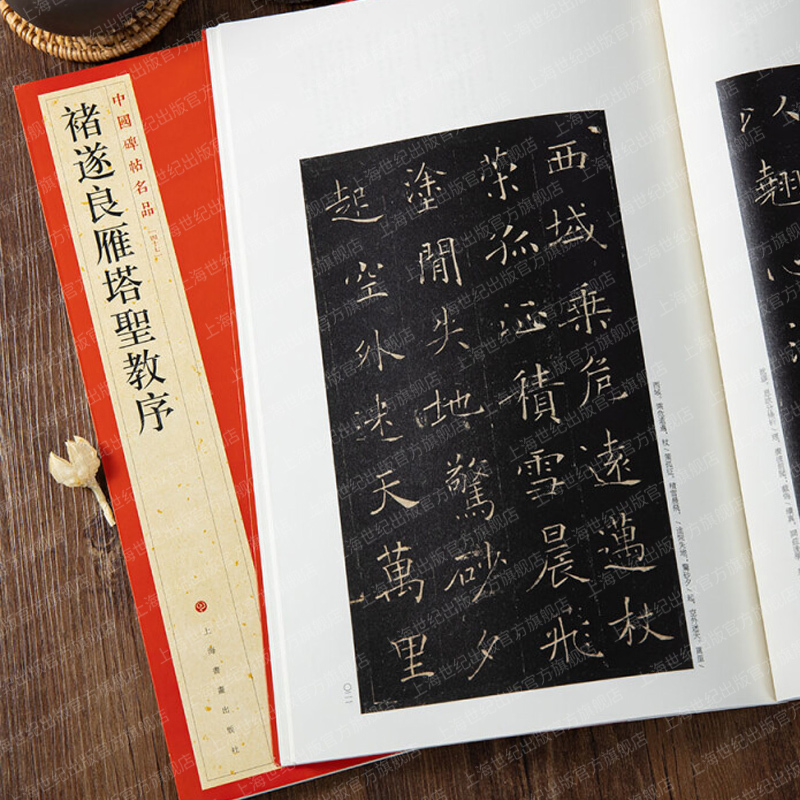 中國碑帖名品
[四十七]
褚遂良雁塔聖教序
上海書畫出版社
西域乘危遠邁杖
策孤征積雪晨飛
塗閒失地驚砂夕
起空外迷天萬里
翹心
上海世纪出版官方旗舰店